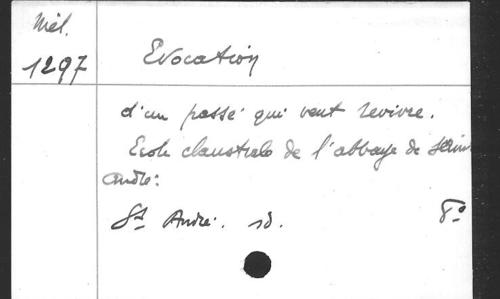 Mél.
1297
Evocation
d'un passé qui veut revivre.
Ecole claustrale de l'abbaye de Saint
André:
St André. sd. 8°